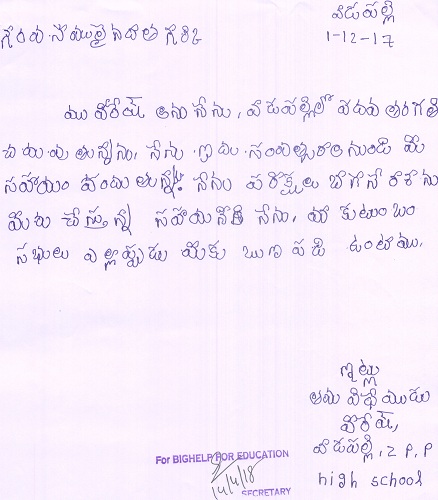 వాడపల్లి
1-12-17
గౌరవ సాముల్సైదాత గారికి
ము వోరేష్ అను నేను, వాడపల్లిలో పదవ తరగతి
చదువు తున్నాను. నేను ఐదు సంవత్సరాల నుండి మీ
సహాయం పొందుతున్న నేను పరీక్షలు బాగానే రాశాను
మీరు చేస్తున్న సహాయనికి నేను, మా కుటుంబం
సభులు ఎల్లప్పుడు మీకు ఋణ పడి ఉంటాము.
ఇట్లు
తమ విధేయుడు
వోరేష్,
వాడపల్లి, Z P, P
high school
For BIGHELP FOR EDUCATION
14/4/18
SECRETARY